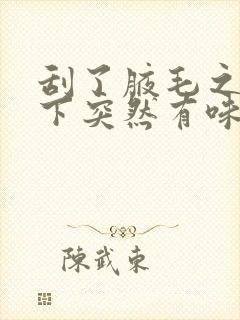 刮了腋毛之
下突然有味
陳武東